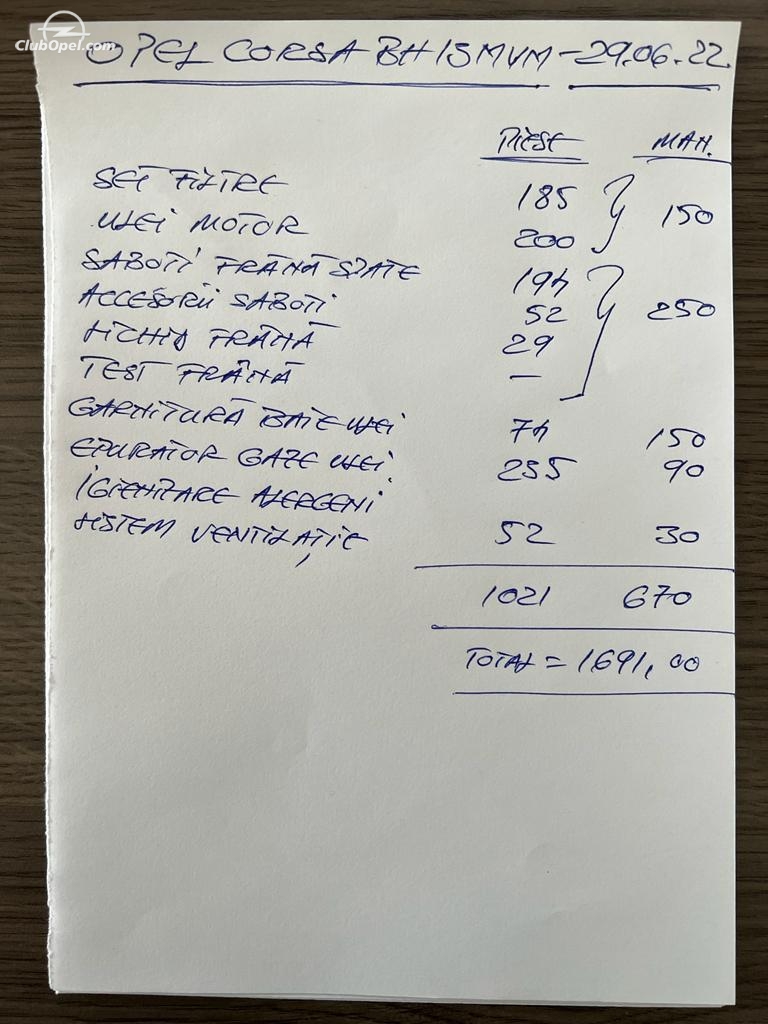 ClubOpel.com
OPEL CORSA BH 15 MVM - 29.06.22
PIESE MAN.
SET FILTRE 185
150
ULEI MOTOR 200
SABOTI FRÂNĂ SPATE 194
ACCESORII SABOTI 52 250
LICHID FRÂNĂ 29
TEST FRÂNĂ —
GARNITURĂ BAIE ULEI 74 150
EPURATOR GAZE ULEI 235 90
IGIENIZARE ALERGENI
SISTEM VENTILAȚIE 52 30
1021 670
TOTAL = 1691,00